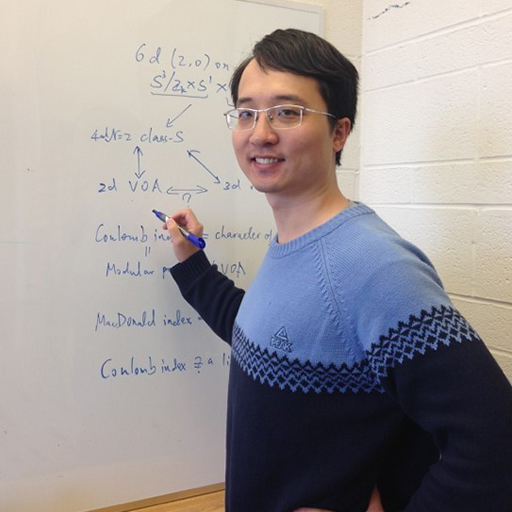 6d (2,0) on
S³/Zₖ × S¹ ×
4d N=2 class-S
2d VOA ⟷ 3d
?
Coulomb = character of
||
Modular VOA
MacDonald index
Coulomb index ? a